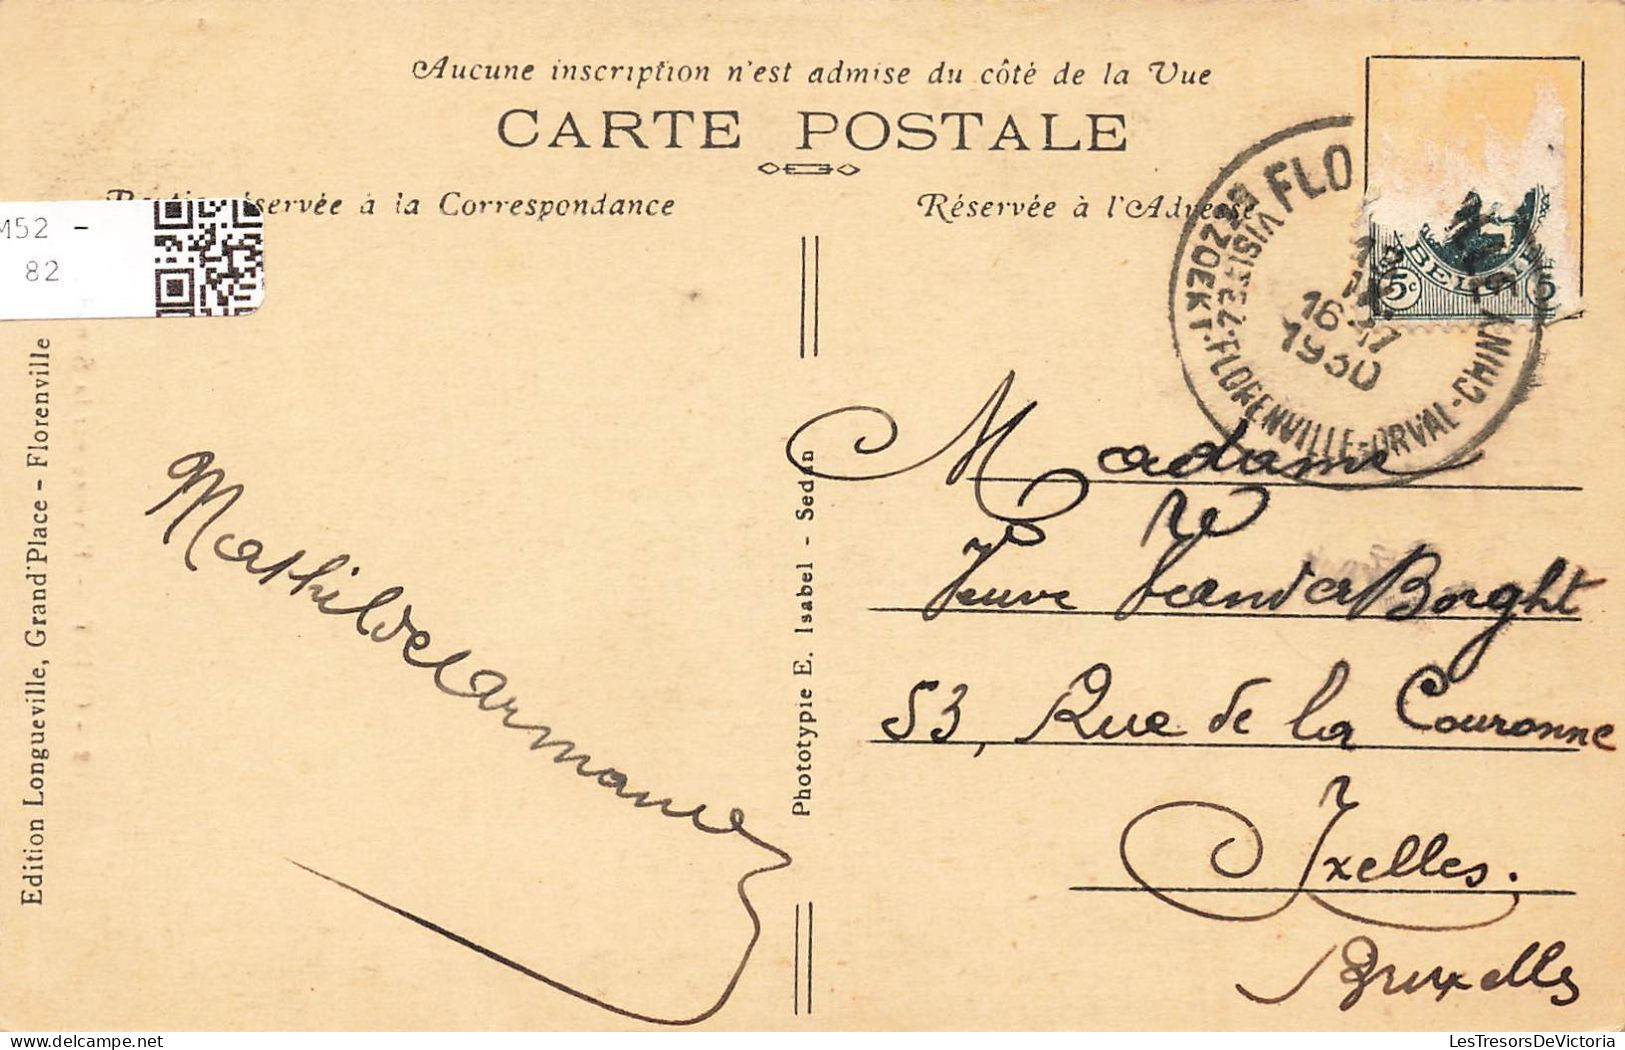 Aucune inscription n'est admise du côté de la Vue
CARTE POSTALE
Partie réservée à la Correspondance
Réservée à l'Adresse
M52 -
82
FLO
BEZOEKT-FLORENVILLE-ORVAL-CHINY
VISITEZ
16-17
1930
BELGIË
5c
5
Edition Longueville, Grand'Place - Florenville
Phototypie E. Isabel - Sedan
Madame
Veuve VanderBorght
53, Rue de la Couronne
Ixelles.
Bruxelles
LesTresorsDeVictoria.com